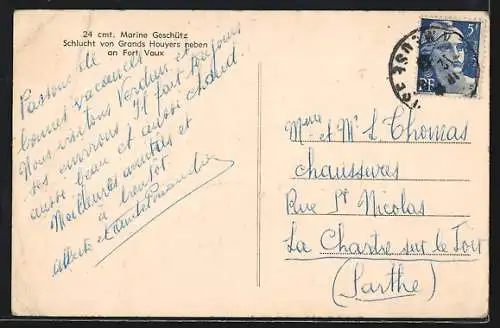 24 cmt. Marine Geschütz
Schlucht von Grands Houyers neben
an Fort Vaux
Passons de
bonnes vacances
Nous visitons Verdun et toujours
ses environs. Il fait
aussi beau et aussi chaud
Meilleures amitiés et
à bientôt
Alberte et
5f
RF
MEUSE
Mme et Mr L. Thomas
chaussures
Rue St Nicolas
La Chartre sur le Loir
(Sarthe)